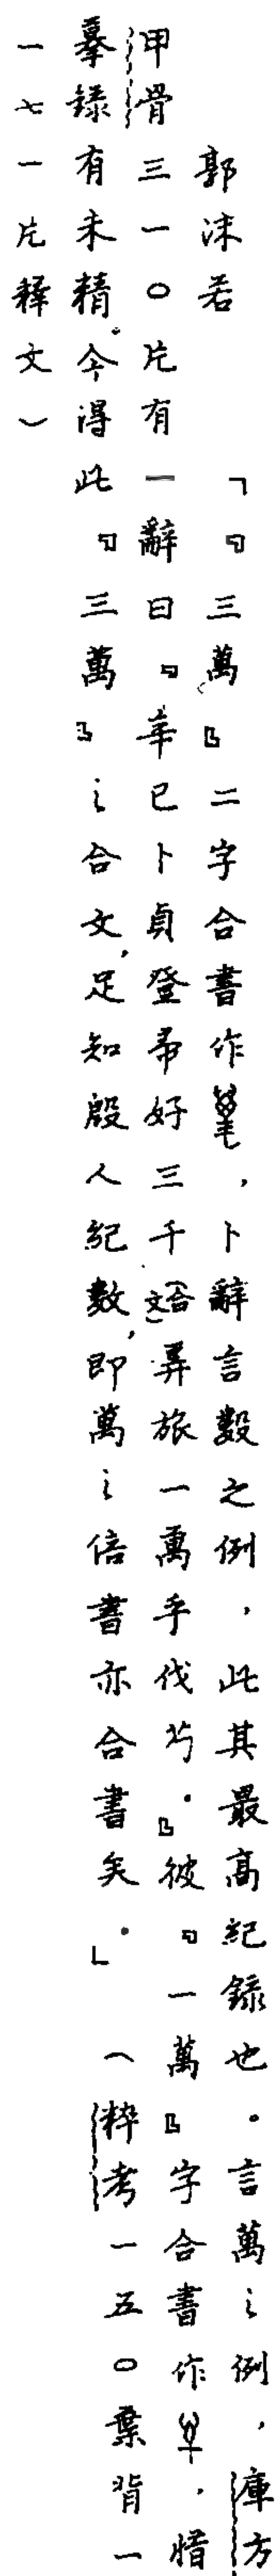 郭沫若 「『三萬』二字合書作，卜辭言數之例，此其最高紀錄也。言萬之例，庫方
甲骨三一〇片有一辭曰『辛巳卜貞登帚好三千(合文)登旅一萬乎伐。』彼『一萬』字合書作，惜
摹錄有未精。今得此『三萬』之合文，足知殷人紀數，即萬之倍書亦合書矣。」（粹考一五〇葉背一
一七一片釋文）